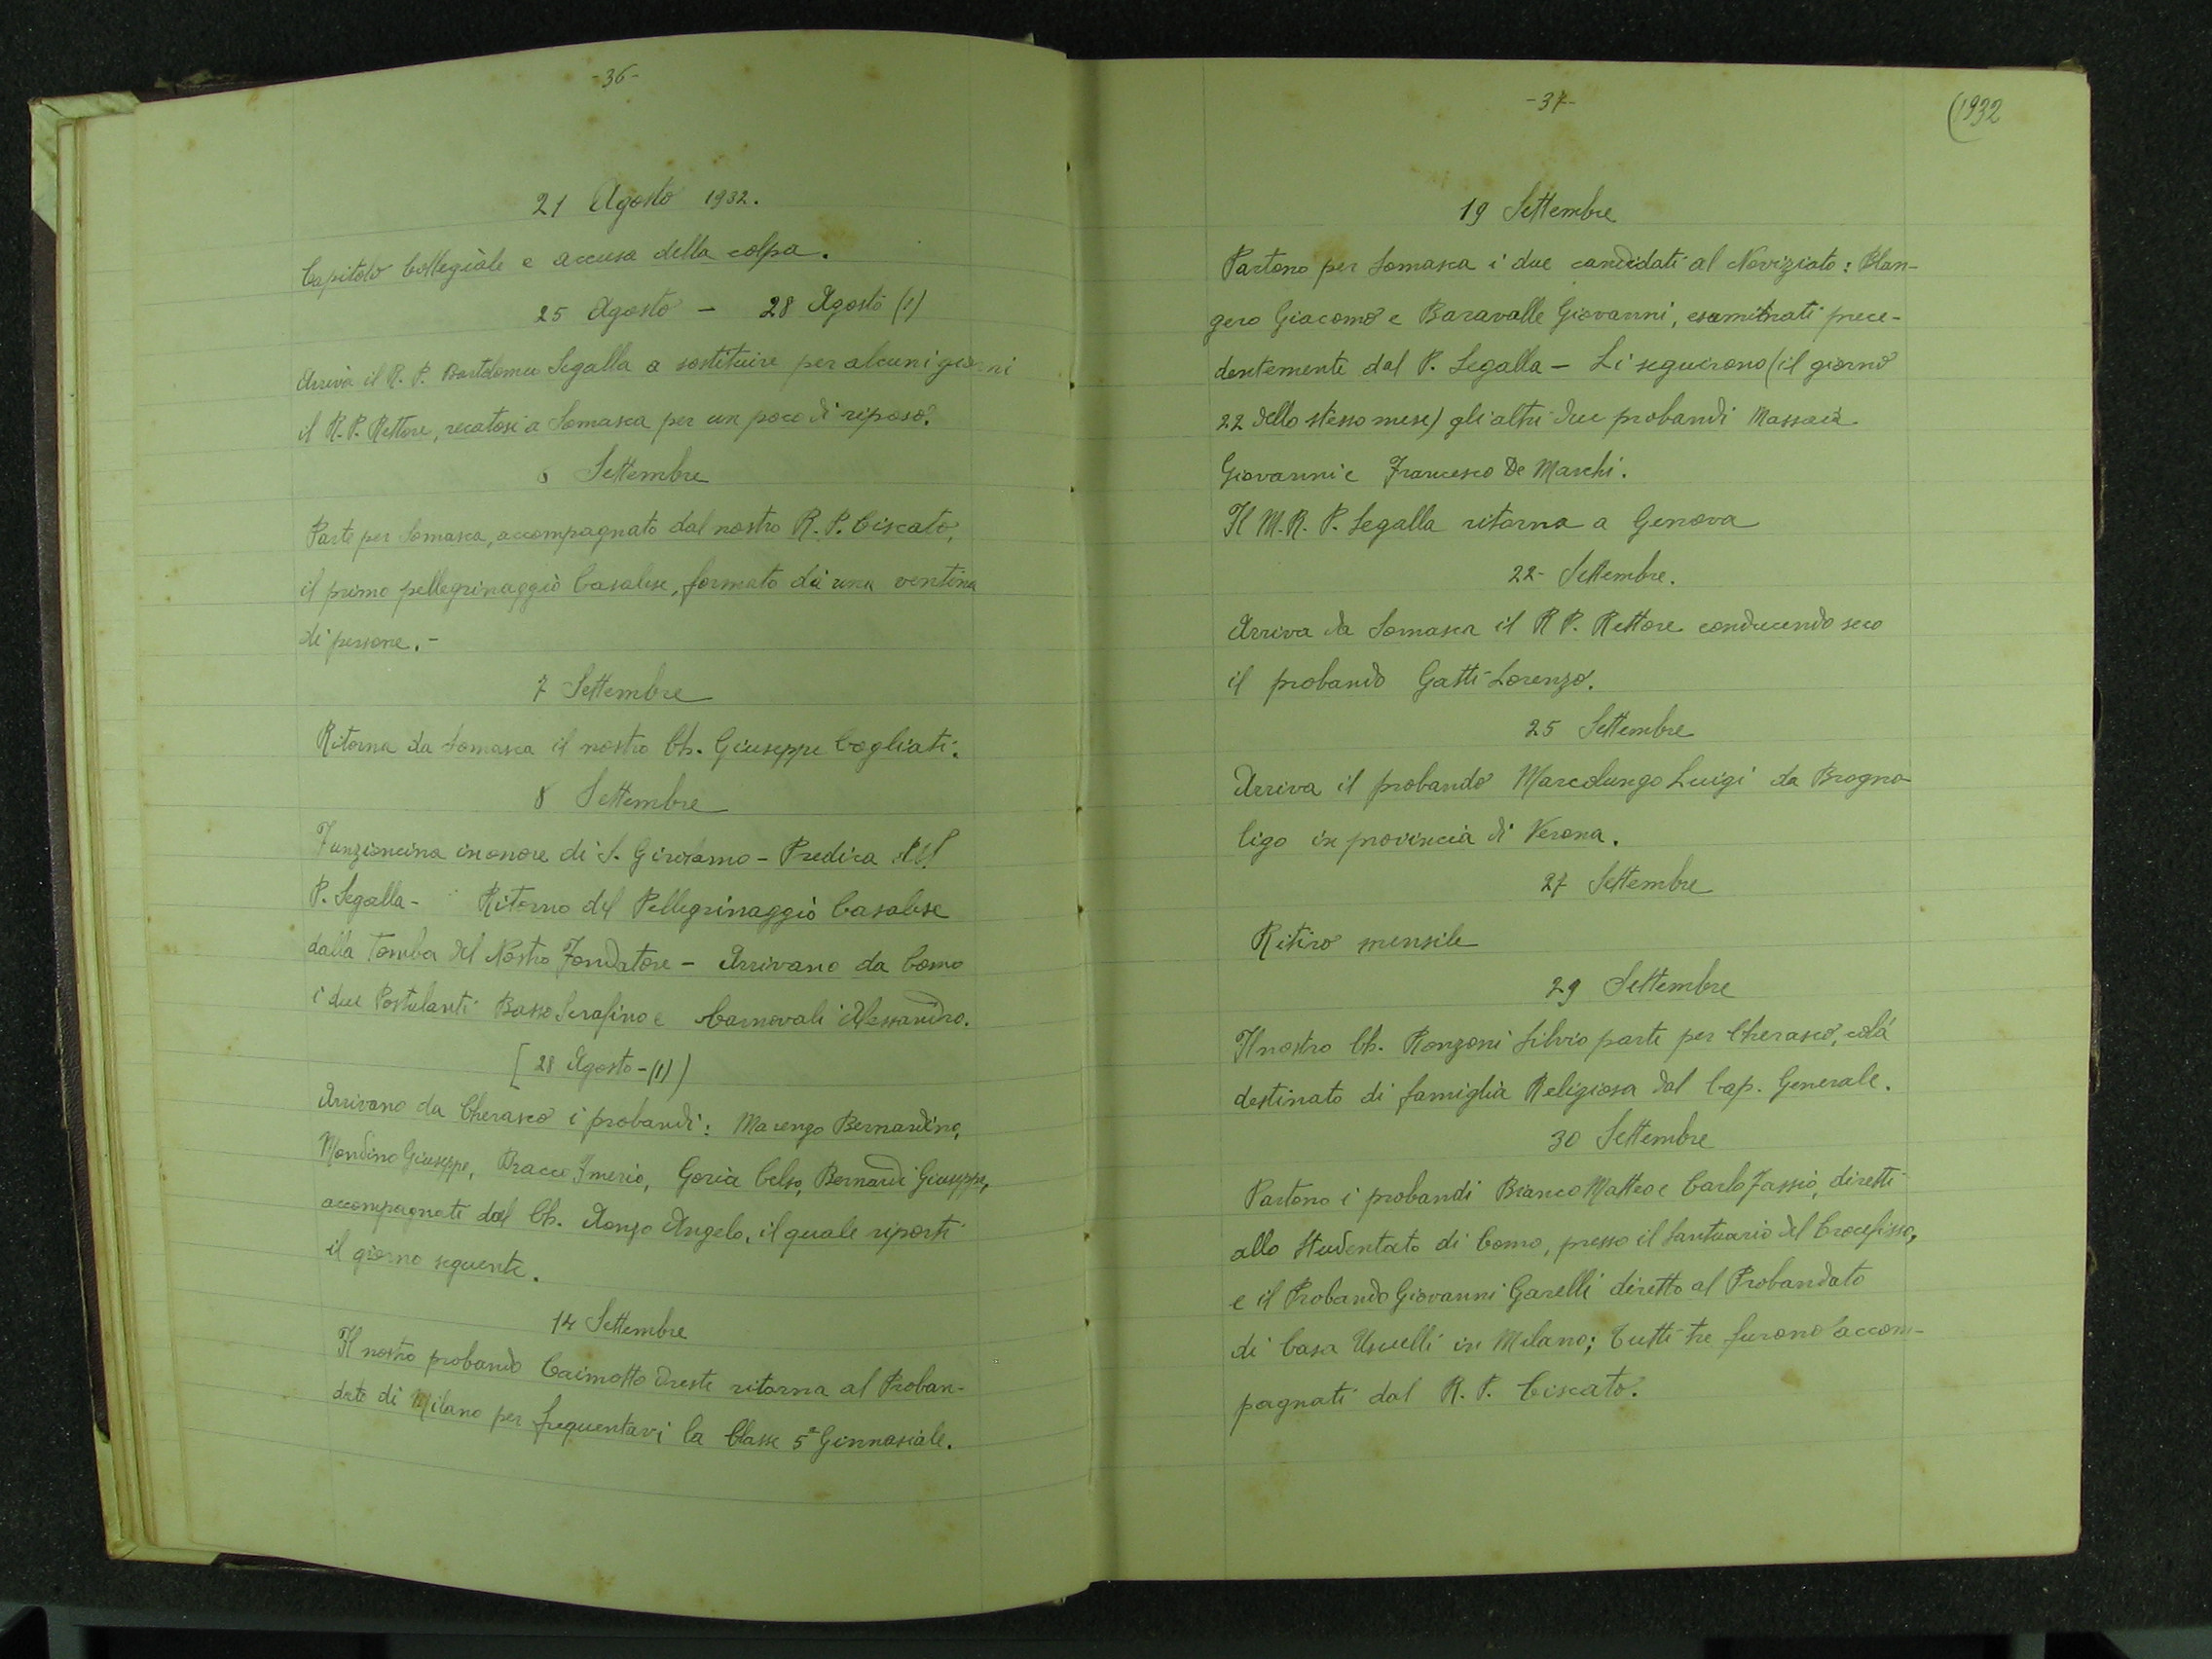 -36-
21 Agosto 1932.
Capitolo Collegiale e accusa della colpa.
25 Agosto - 28 Agosto (1)
Arriva il R. P. Bartolomeo Segalla a sostituire per alcuni giorni
il R. P. Rettore, recatosi a Somasca per un poco di riposo.
Settembre
Parte per Somasca, accompagnato dal nostro R. P. Ciscato,
il primo pellegrinaggio Casalese, formato da una ventina
di persone. -
7 Settembre
Ritorna da Somasca il nostro Ch. Giuseppe Cogliati.
8 Settembre
Funzioncina in onore di S. Girolamo - Predica del
P. Segalla - Ritorno del Pellegrinaggio Casalese
dalla Tomba del Nostro Fondatore - Arrivano da Como
i due Postulanti Basso Serafino e Carnovali Alessandro.
[28 Agosto - (1))
Arrivano da Cherasco i probandi: Marengo Bernardino,
Mondino Giuseppe, Bracco Imerio, Goria Celso, Bernardi Giuseppe,
accompagnati dal Ch. Ronzo Angelo, il quale riparti
il giorno seguente.
14 Settembre
Il nostro probando Caimotto Oreste ritorna al Proban-
dato di Milano per frequentarvi la Classe 5ª Ginnasiale.
-37-
(1932
19 Settembre
Partono per Somasca i due candidati al Noviziato: Plan-
gero Giacomo e Baravalle Giovanni, esaminati prece-
dentemente dal P. Segalla - Li seguirono (il giorno
22 dello stesso mese) gli altri due probandi Massaia
Giovanni e Francesco De Marchi.
Il M. R. P. Segalla ritorna a Genova
22 - Settembre.
Arriva da Somasca il R P. Rettore conducendo seco
il probando Gatti Lorenzo.
25 Settembre
Arriva il probando Marcolungo Luigi da Brogno-
ligo in provincia di Verona.
27 Settembre
Ritiro mensile
29 Settembre
Il nostro Ch. Ronzoni Silvio parte per Cherasco, colà
destinato di famiglia Religiosa dal Cap. Generale.
30 Settembre
Partono i probandi Bianco Matteo e Carlo Fassio, diretti
allo Studentato di Como, presso il Santuario del Crocefisso,
e il Probando Giovanni Garelli diretto al Probandato
di Casa Usuelli in Milano; tutti tre furono accom-
pagnati dal R. P. Ciscato.